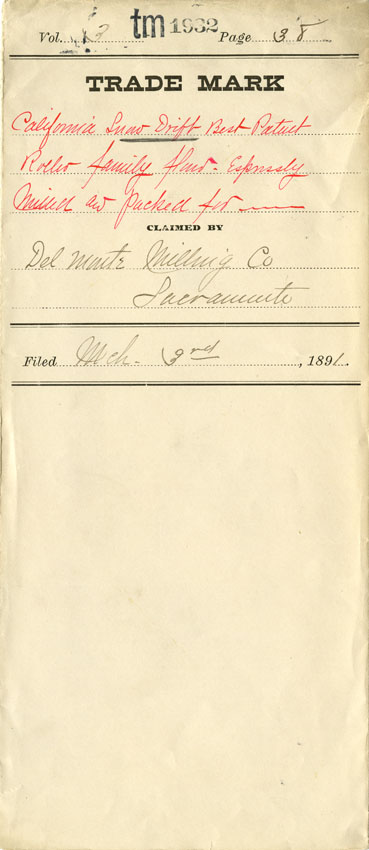 Vol. 2 tm 1932 Page 38
TRADE MARK
California Snow Drift Best Patent
Roller family flour - Expressly
Milled and packed for ——
CLAIMED BY
Del Monte Milling Co
Sacramento
Filed Mch. 3rd, 1891.